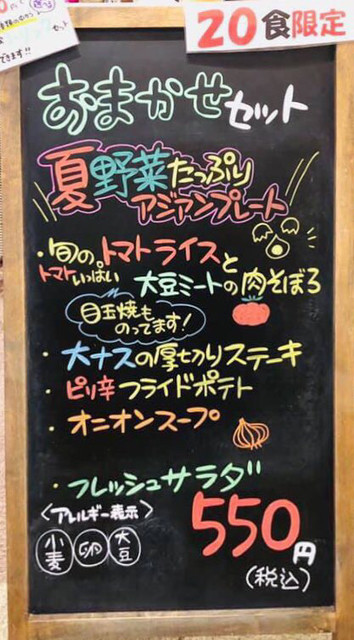 20食限定
おまかせセット
夏野菜たっぷり
アジアンプレート
・旬のトマトライスと
トマトいっぱい
大豆ミートの肉そぼろ
目玉焼も
のってます!
・大ナスの厚切りステーキ
・ピリ辛フライドポテト
・オニオンスープ
・フレッシュサラダ
<アレルギー表示>
小麦 卵 大豆
550円
(税込)